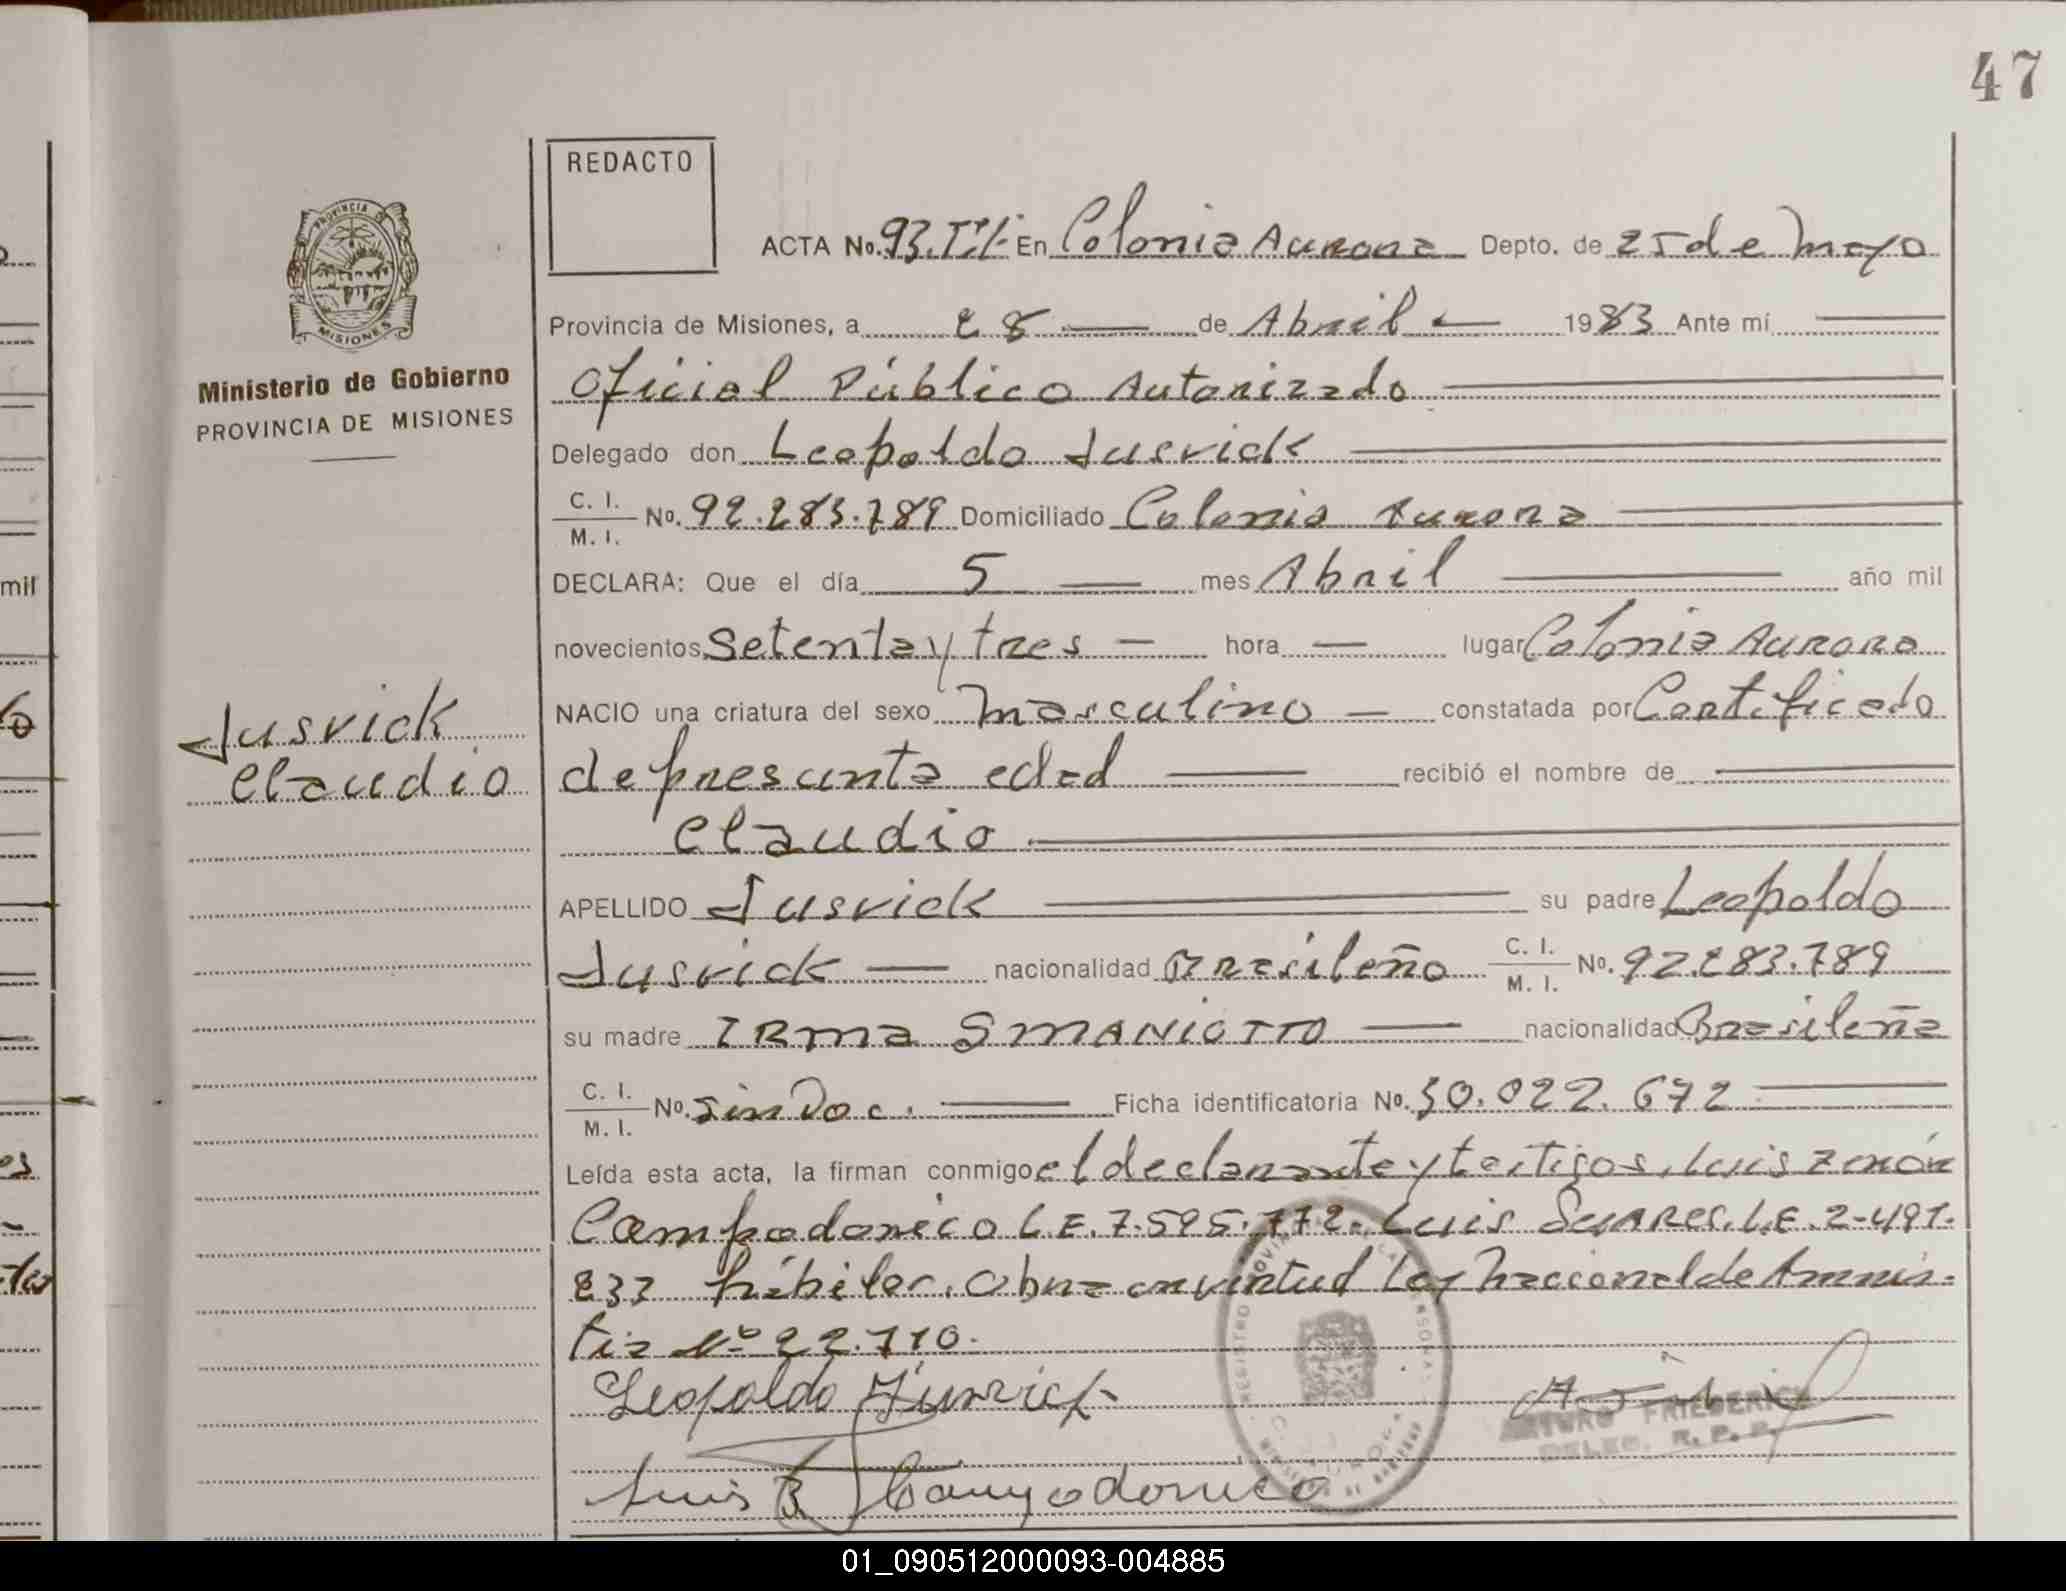 47
REDACTO
ACTA No. 93.Tº I.- En Colonia Aurora Depto. de 25 de Mayo
Provincia de Misiones, a 28 — de Abril — 1983 Ante mí —
Oficial Público Autorizado —
Delegado don Leopoldo Jusvick —
C. I. / M. I. No. 92.283.789 Domiciliado Colonia Aurora —
DECLARA: Que el día 5 — mes Abril — año mil
novecientos Setenta y tres — hora — lugar Colonia Aurora
NACIO una criatura del sexo Masculino — constatada por Certificado
de presunta edad — recibió el nombre de —
Claudio —
APELLIDO Jusvick — su padre Leopoldo
Jusvick — nacionalidad Brasileño C. I. / M. I. No. 92.283.789
su madre IRMA SMANIOTTO — nacionalidad Brasileña
C. I. / M. I. No. Sin Doc. — Ficha identificatoria No. 30.022.672 —
Leída esta acta, la firman conmigo el declarante y testigos, Luis Zenón
Campodonico L.E. 7.595.772- Luis Suares. L.E. 2-491.
833 hábiles. Obra en virtud Ley Nacional de Amnis-
tia Nº 22.710.
Leopoldo
Luis Campodonico
ARTURO FRIEDERICH
DELEG. R. P. P.
PROVINCIA DE
MISIONES
Ministerio de Gobierno
PROVINCIA DE MISIONES
Jusvick
Claudio
mil
01_090512000093-004885